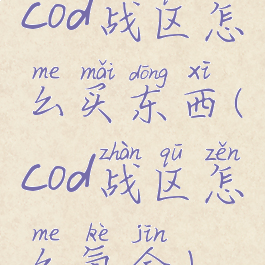 cod战区怎
me mǎi dōng xī
么买东西(
zhàn qū zěn
cod战区怎
me kè jīn
么氪金)